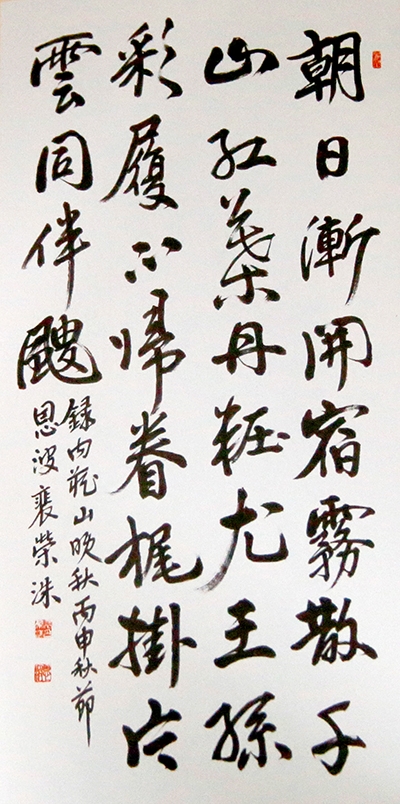 朝日漸開宿霧散千
山紅葉丹粧尤王孫
彩履不帰眷梶掛片
雲同伴颼
錄內藏山晚秋丙申秋節
恩波裵榮洙